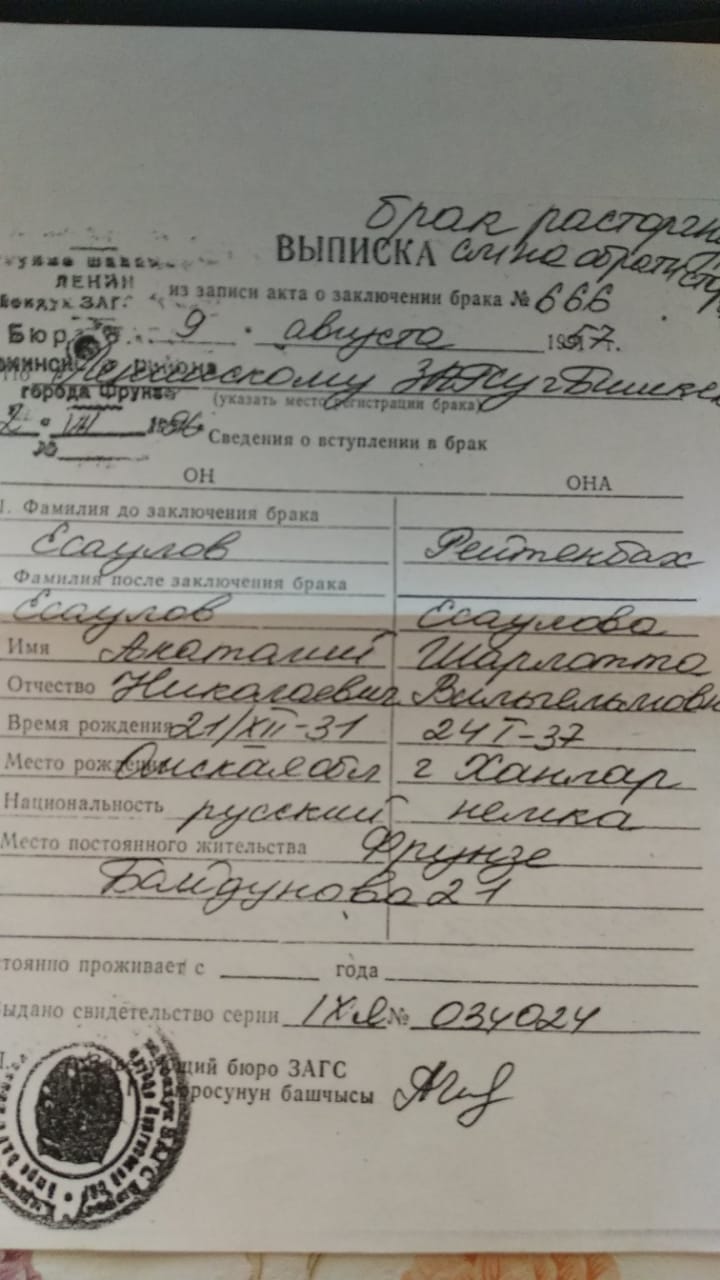 брак расторгн
ВЫПИСКА см на обратн стор
ЛЕНИН
ЗАГС
из записи акта о заключении брака № 666
Бюро
9 августа 1957 г.
района
ЗАГСу г Бишкек
города Фрунзе
(указать место регистрации брака)
2 VIII 1996
№
Сведения о вступлении в брак
ОН ОНА
1. Фамилия до заключения брака
Есаулов Рейтенбах
Фамилия после заключения брака
Есаулов Есаулова
Имя Анатолий Шарлотта
Отчество Николаевич Вильгельмовн
Время рождения 21/XII-31 24 I-37
Место рождения Омская обл г Ханлар
Национальность русский немка
Место постоянного жительства Фрунзе
Байдунова 21
тоянно проживает с года
ыдано свидетельство серии IХЯ № 034024
щий бюро ЗАГС
юросунун башчысы